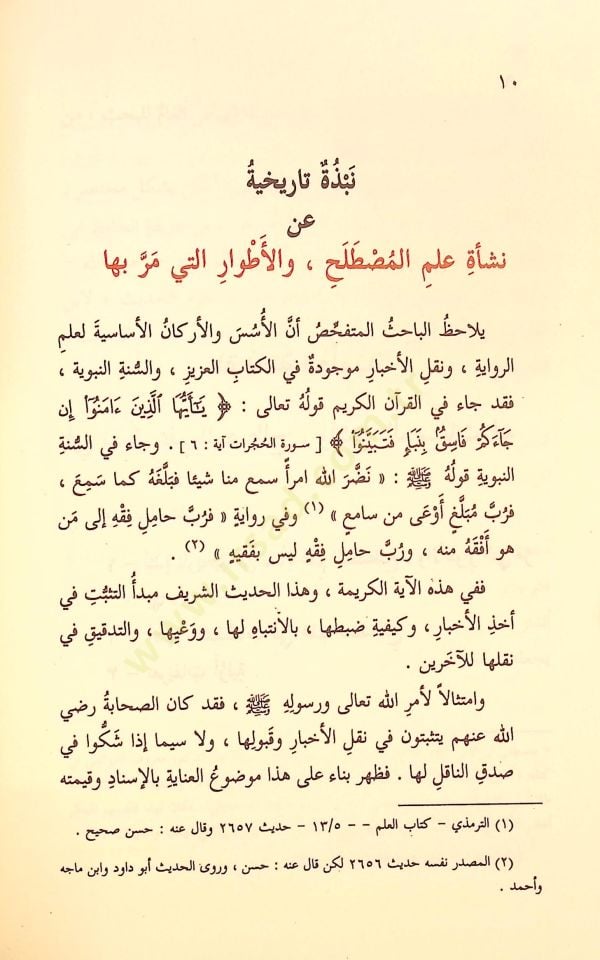 ١٠
نَبْذُةٌ تاريخيةُ
عن
نشأةِ علمِ المُصْطَلَحِ ، والأَطْوارِ التي مَرَّ بها
يلاحظُ الباحثُ المتفحِّصُ أنَّ الأُسُسَ والأركانَ الأساسيةَ لعلمِ
الروايةِ ، ونقلِ الأخبارِ موجودةٌ في الكتاب العزيزِ ، والسُّنةِ النبوية ،
فقد جاء في القرآن الكريم قولُهُ تعالى : ﴿ يَٰٓأَيُّهَا ٱلَّذِينَ ءَامَنُوٓا۟ إِن
جَآءَكُمْ فَاسِقٌۢ بِنَبَإٍ فَتَبَيَّنُوٓا۟ ﴾ [ سورة الحُجرات آية : ٦ ] . وجاء في السُّنةِ
النبوية قولُهُ ﷺ : « نَضَّرَ الله امرأً سمع منا شيئا فبَلَّغَهُ كما سَمِعَ ،
فرُبَّ مُبَلَّغٍ أَوْعَى من سامعٍ » (١) وفي روايةٍ « فرُبَّ حاملِ فِقْهٍ إلى مَن
هو أَفْقَهُ منه ، ورُبَّ حاملِ فِقْهٍ ليس بفَقيهٍ » (٢) .
ففي هذه الآية الكريمة ، وهذا الحديث الشريف مبدأُ التثبُّتِ في
أخذِ الأخبارِ ، وكيفيةِ ضبطها ، بالانتباهِ لها ، ووَعْيِها ، والتدقيقِ في
نقلها للآخَرين .
وامتثالاً لأمرِ الله تعالى ورسولِهِ ﷺ ، فقد كان الصحابةُ رضي
الله عنهم يتثبتون في نقل الأخبار وقَبولِها ، ولا سيما إذا شَكُّوا في
صدقِ الناقلِ لها . فظهر بناء على هذا موضوعُ العنايةِ بالإسنادِ وقيمته
(١) الترمذي – كتاب العلم – – ١٣/٥ – حديث ٢٦٥٧ وقال عنه : حسن صحيح .
(٢) المصدر نفسه حديث ٢٦٥٦ لكن قال عنه : حسن ، وروى الحديث أبو داود وابن ماجه
وأحمد .